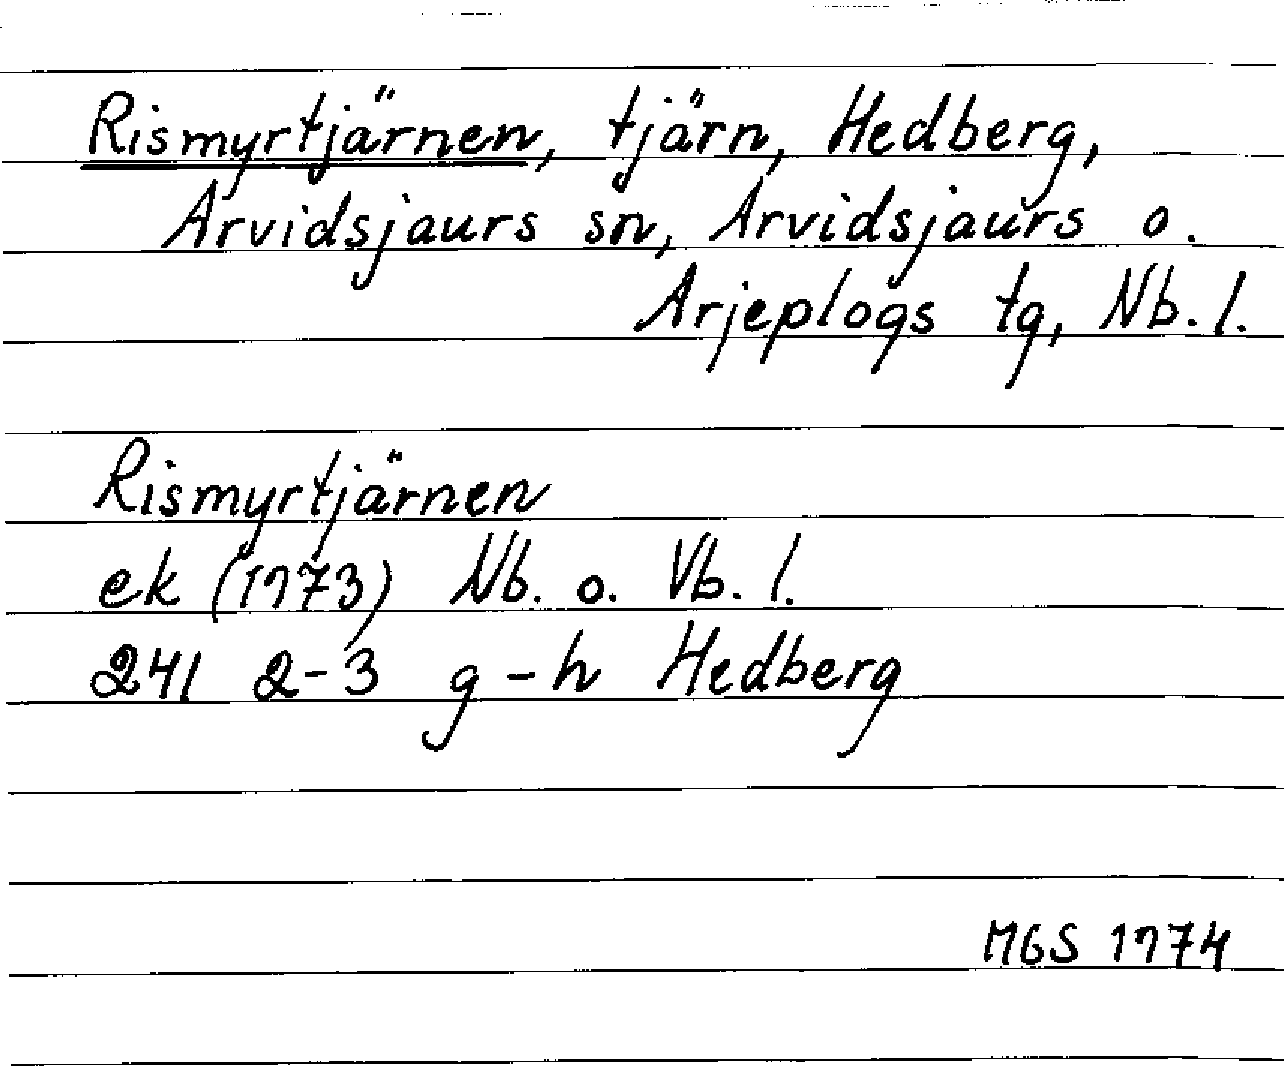 Rismyrtjärnen, tjärn, Hedberg,
Arvidsjaurs sn, Arvidsjaurs o.
Arjeplogs tg, Nb. l.
Rismyrtjärnen
ek (1973) Nb. o. Vb. l.
24I 2-3 g-h Hedberg
MGS 1974